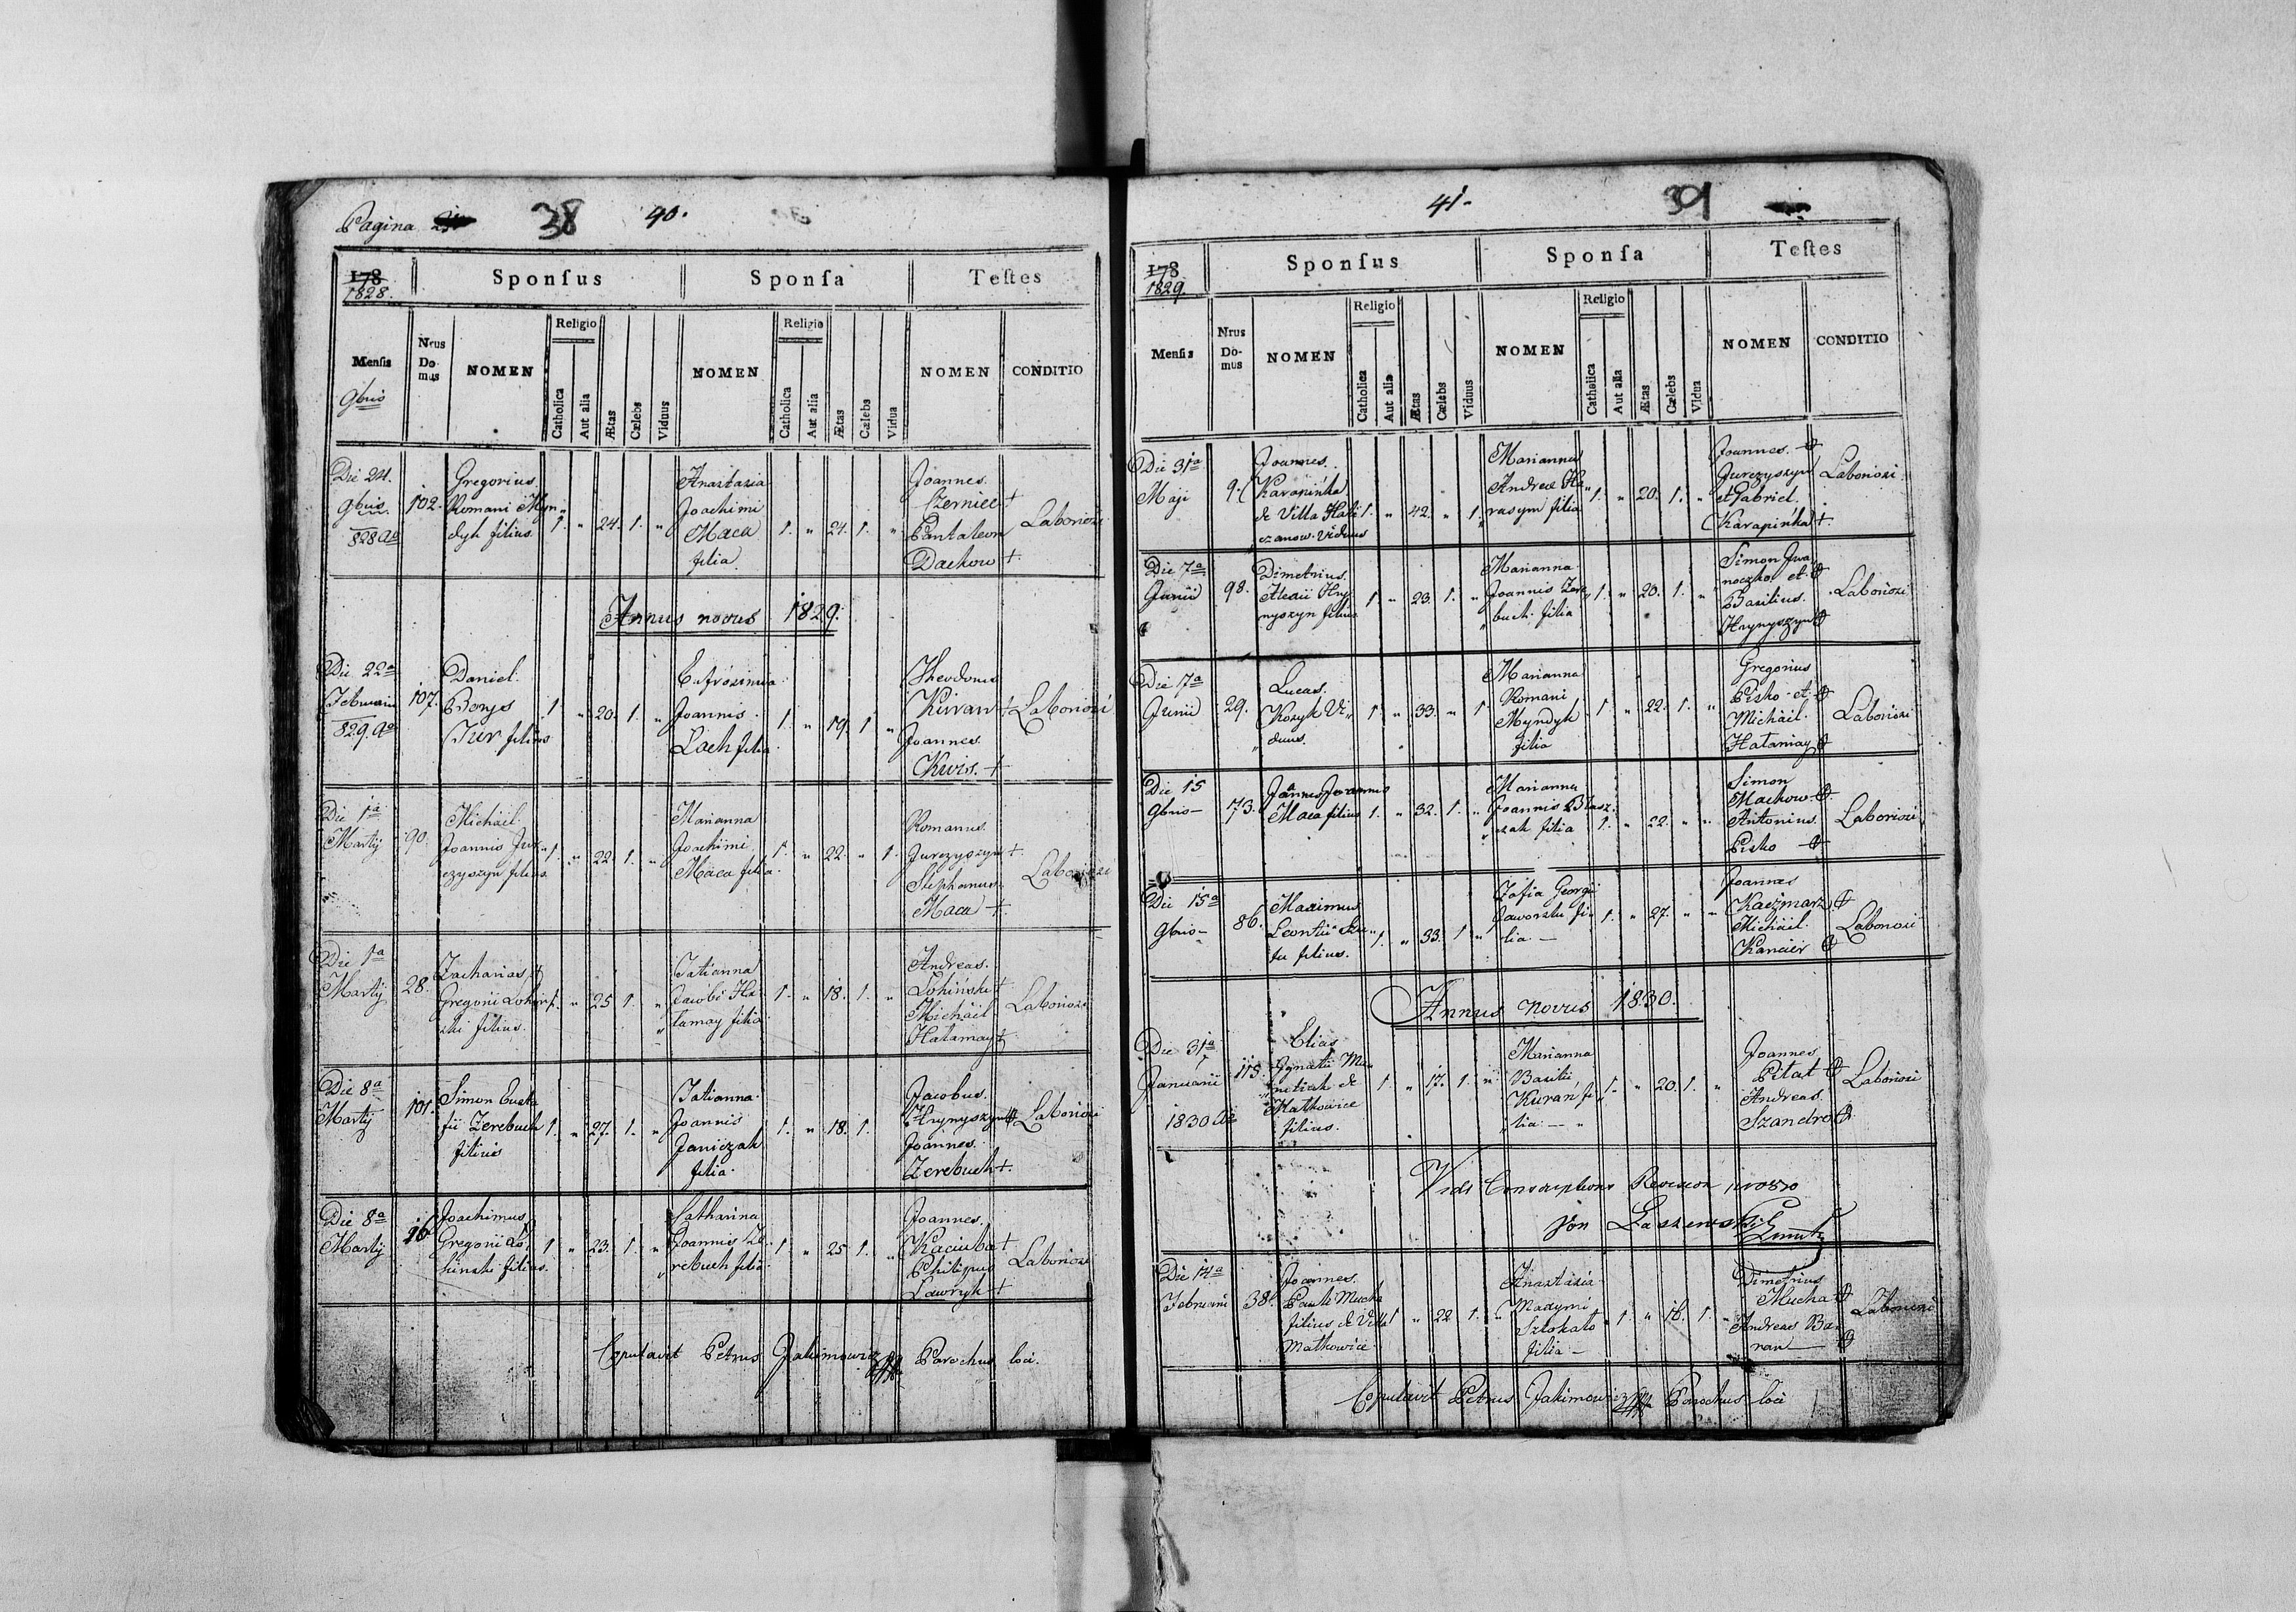 Pagina 38 40.
178
1828.
Sponſus Sponſa Teſtes
Menſis
9bris
Nrus Do-mus
NOMEN
Religio
Catholica
Aut alia
Ætas
Cælebs
Viduus
NOMEN
Religio
Catholica
Aut alia
Ætas
Cælebs
Vidua
NOMEN
CONDITIO
Die 24. Gregorius Anastasia Joannes
9bris 102. Romani Myn„ 1. „ 24. 1. „ Joachimi 1. „ 24. 1. „ Czerniec + Laboriosi
828 Ao dyk filius. Maca Pantaleon
filia. Dackow +
Annus novus 1829.
Die 22a Daniel Eufrosinna Theodorus
Februarii 107. Borys 1. „ 20. 1. „ Joannis 1. „ 19. 1 „ Kuran + Laboriosi
829. Ao Tur filius Lach filia Joannes
Kwis. +
Die 1a Michäil Marianna Romanus
Martij 90. Joannis Jur„ 1. „ 22. 1. „ Joachimi 1. „ 22. „ 1. Jurczyszyn + Laboriosi
czyszyn filius Maca filia Stephanus
Maca +
Die 1a Zacharias Tatianna Andreas
Martij 28. Gregorii Lohin 1. „ 25 1. „ Jacobi Ha„ 1. „ 18. 1. „ Lohinski + Laboriosi
ski filius. tamay filia Michäil
Hatamay +
Die 8a Simon Eusta Tatianna Jacobus
Martij 101. fii Zerebuch 1. „ 27. 1. „ Joannis 1. „ 18. 1. Hrynyszyn + Laboriosi
filius Janiczak Joannes
filia. Zerebuch +
Die 8a Joachimus Catharina Joannes
Martij 26 Gregorii Lo 1 „ 23. 1. „ Joannis Ze 1. „ 25 1. „ Kaciuba + Laboriosi
hinski filius. rebuch filia Philippus
Lawryk +
Copulavit Petrus Jakimowicz Parochus loci.
41. 39
178
1829
Sponſus Sponſa Teſtes
Menſis
Nrus Do-mus
NOMEN
Religio
Catholica
Aut alia
Ætas
Cælebs
Viduus
NOMEN
Religio
Catholica
Aut alia
Ætas
Cælebs
Vidua
NOMEN
CONDITIO
Die 31a Joannes Marianna Joannes
Maji Karapinka Andreæ Ha„ 1. „ 20. 1. „ Jurczyszyn Laboriosi
de Villa Hali 1. „ 42. „ 1. rasym filia et Gabriel
czanow. Viduus Karapinka +
Die 7a Dimetrius Marianna Simon Iwa
Junii 98. Alexii Hry 1. „ 23. 1. „ Joannis Zere 1. „ 20. 1. „ noczko et Laboriosi
nyszyn filius buch filia Basilius
Hrynyszyn
Die 17a Lucas Marianna Gregorius
Junii 29. Kozyk Vi„ 1 „ 33. „ 1. Romani 1. „ 22. 1. „ Pisko et Laboriosi
duus. Myndyk Michäil
filia Hatamay
Die 15 Joannes Joannis Marianna Simon
9bris 73. Maca filius 1. „ 32. 1. „ Joannis Blasz„ Mackow. Laboriosi
czak filia 1. „ 22. „ „ Antonius
Pisko
Die 15a Maximus Zofia Georgii Joannes
9bris 86. Leontii 1. „ 33. 1 „ Jaworski fi„ 1. „ 27. „ „ Kaczmarz Laboriosi
filius. lia. Michäil
Kancier
Annus novus 1830.
Die 31a Elias Marianna Joannes
Januarii 115. Ignatii 1. „ 17. 1. „ Basilii 1. „ 20. 1. „ Pitat Laboriosi
de Kuran fi„ Andreas
1830 Ao Matkowice lia. Szandro
filius.
Vidi Conscriptions Revision
von Laszewski
Die 14a Joannes Anastasia Dimetrius
Februarii 38. Pauli Mucha 1 „ 22. 1. „ Maxymi 1. „ 18. 1. „ Mucha Laboriosi
filius de Villa Andreas Ba„
Matkowice filia ran
Copulavit Petrus Jakimowicz Parochus loci